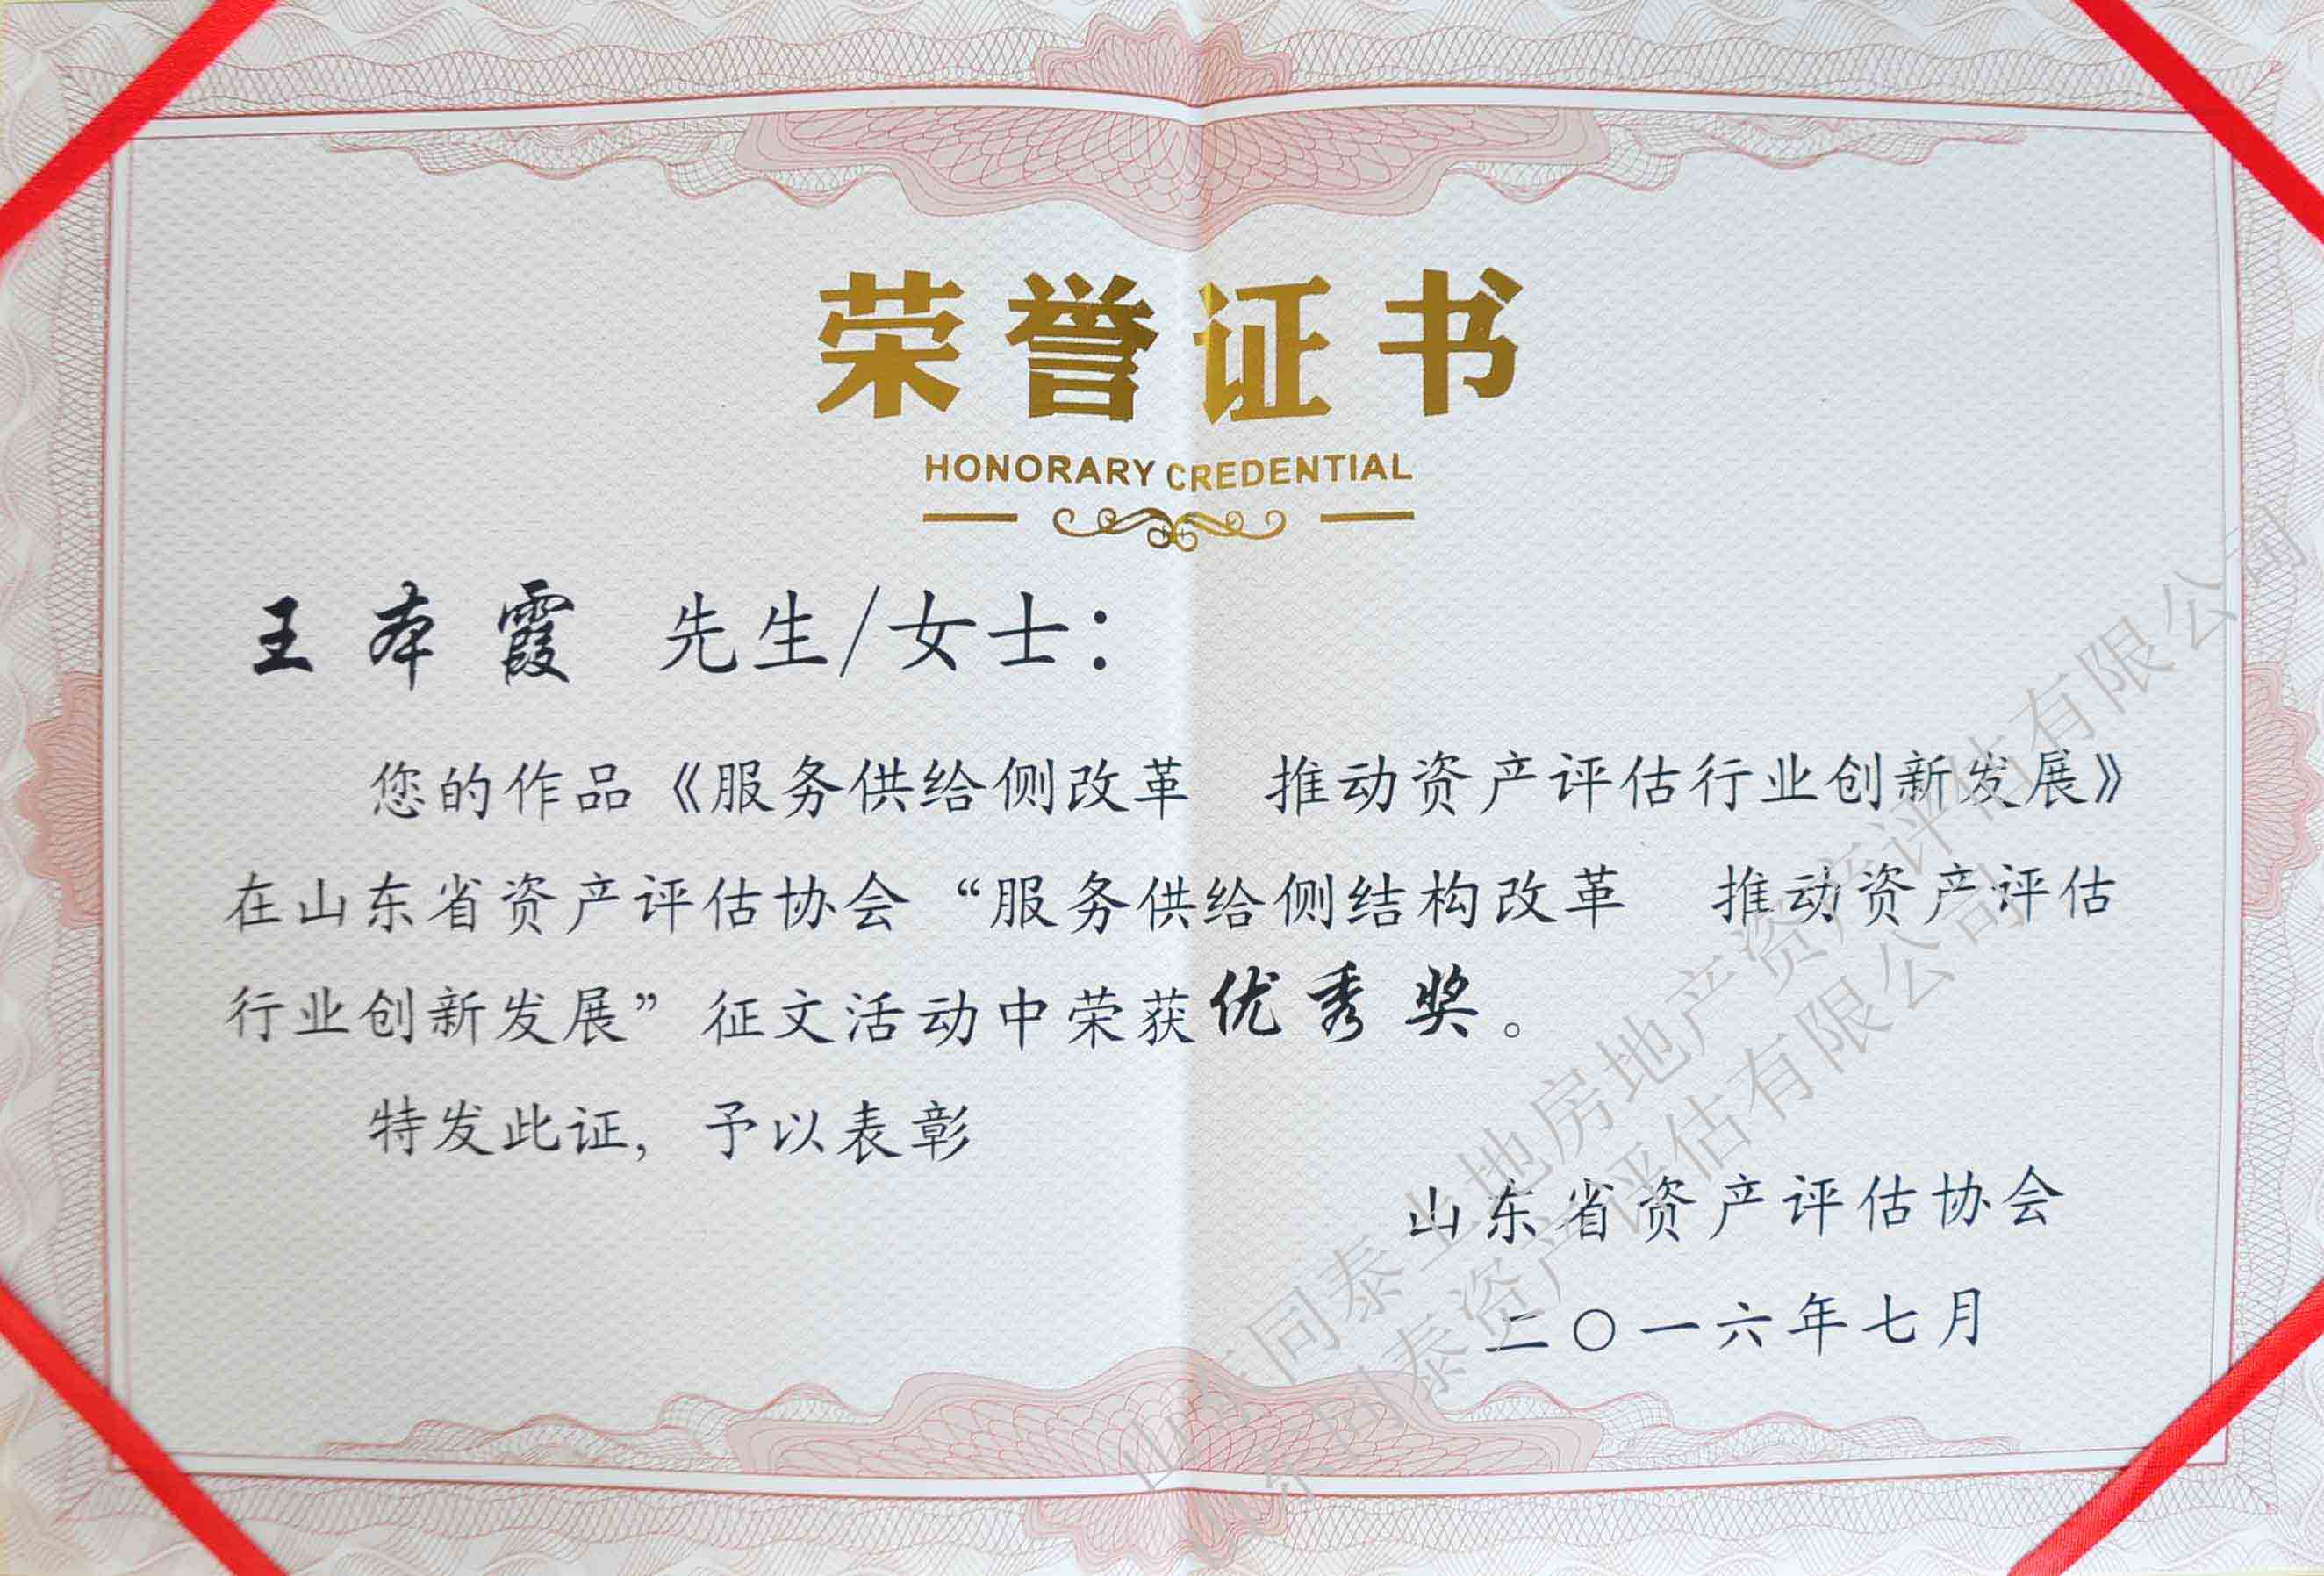 荣誉证书
HONORARY CREDENTIAL
王本霞 先生/女士：
您的作品《服务供给侧改革 推动资产评估行业创新发展》
在山东省资产评估协会“服务供给侧结构改革 推动资产评估
行业创新发展”征文活动中荣获优秀奖。
特发此证，予以表彰
山东省资产评估协会
二〇一六年七月
山东同泰土地房地产资产评估有限公司
山东同泰资产评估有限公司